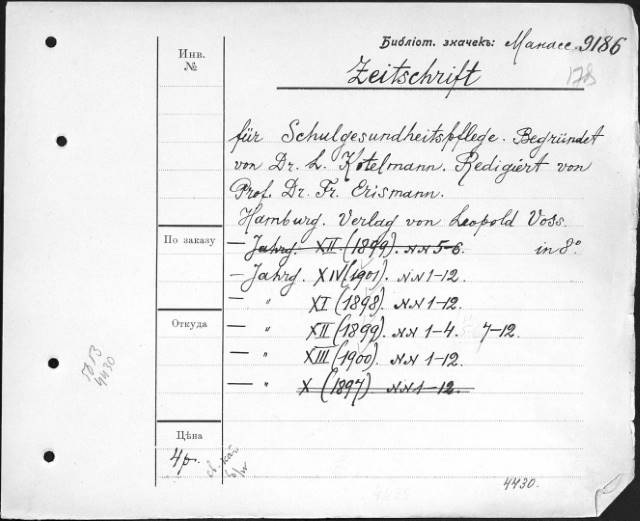 Библіот. значекъ: Манасс. 9186
Инв. №
Zeitschrift
178
für Schulgesundheitspflege. Begründet
von Dr. L. Kotelmann. Redigiert von
Prof. Dr. Fr. Erismann.
Hamburg. Verlag von Leopold Voss.
По заказу
— Jahrg. XII (1899). NN 5-6. in 8°
— Jahrg. XIV (1901). NN 1-12.
— " XI (1898). NN 1-12.
Откуда
— " XII (1899). NN 1-4. 7-12.
— " XIII (1900). NN 1-12.
— " X (1897). NN 1-12.
4430
Цѣна
4р.
4430.